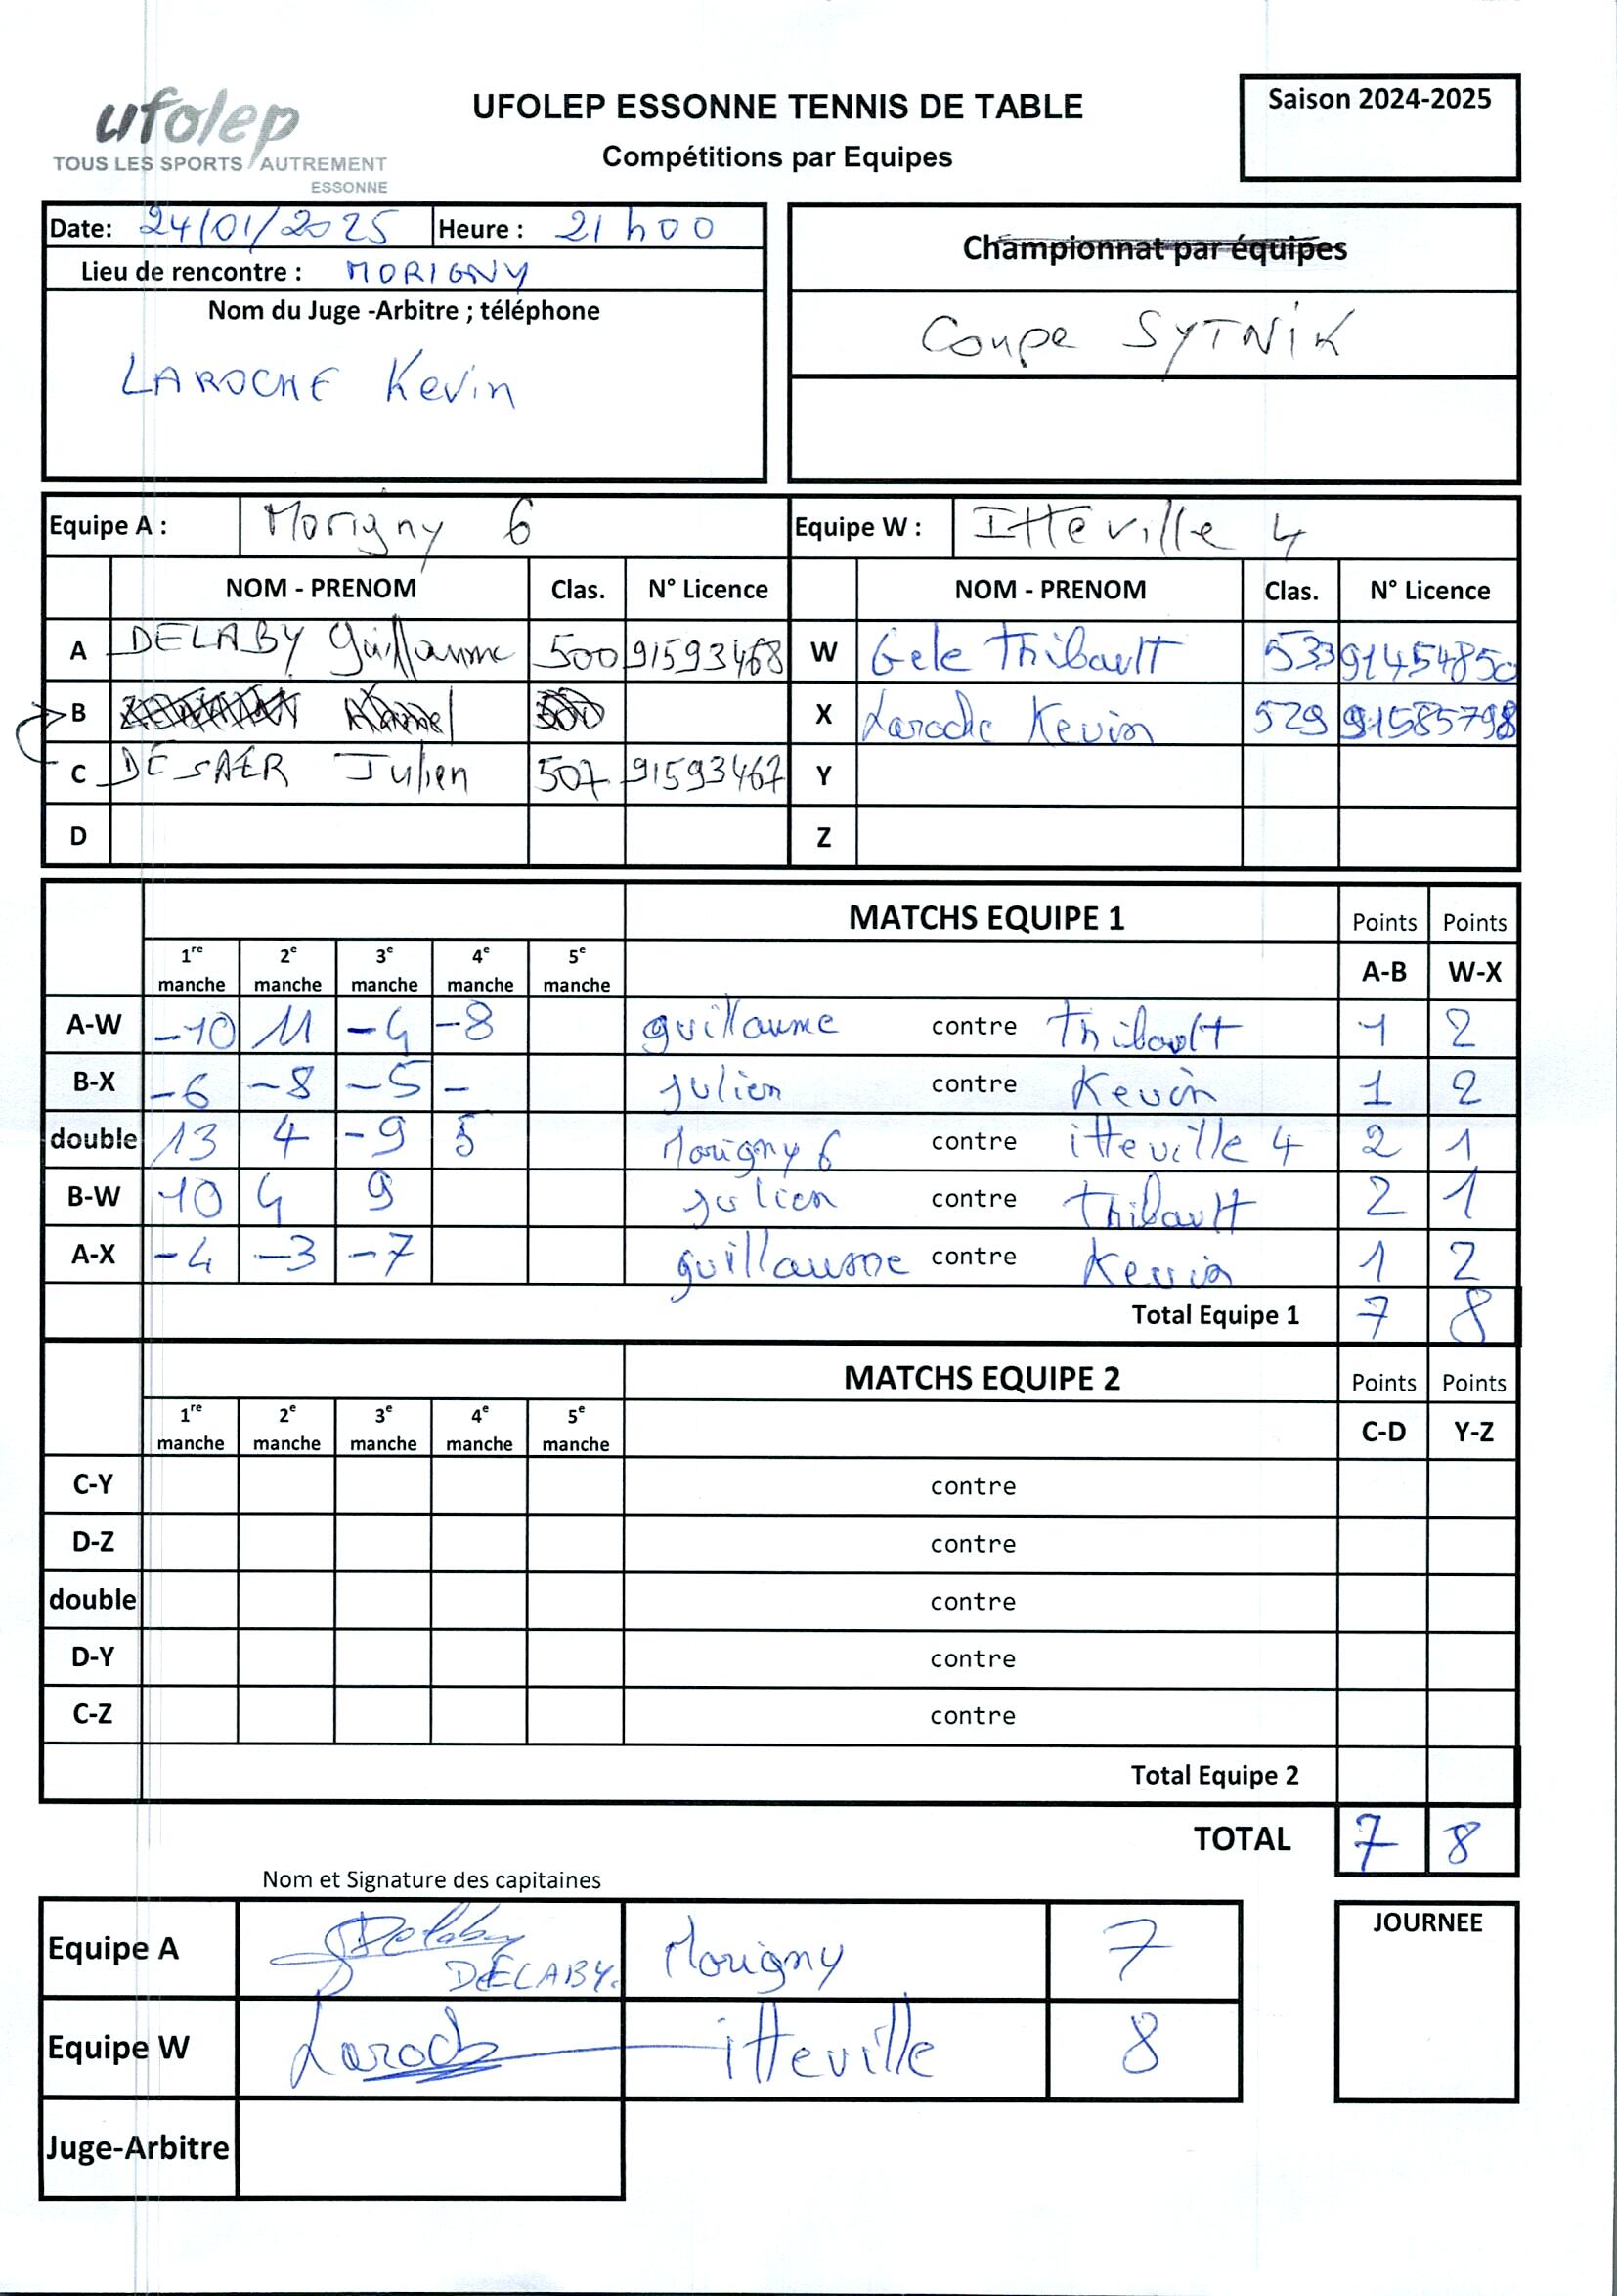 ufolep
TOUS LES SPORTS AUTREMENT
ESSONNE
UFOLEP ESSONNE TENNIS DE TABLE
Compétitions par Equipes
Saison 2024-2025
Date: 24/01/2025 Heure : 21h00
Lieu de rencontre : MORIGNY
Nom du Juge -Arbitre ; téléphone
LAROCHE Kevin
Championnat par équipes
Coupe SYTNIK
Equipe A : Morigny 6 Equipe W : Itteville 4
NOM - PRENOM Clas. N° Licence NOM - PRENOM Clas. N° Licence
A DELABY Guillaume 500 91593468 W Gele Thibault 533 91454850
B X Laroche Kevin 529 91585798
C DESAER Julien 507 91593467 Y
D Z
MATCHS EQUIPE 1 Points Points
1re manche 2e manche 3e manche 4e manche 5e manche A-B W-X
A-W -10 11 -4 -8 guillaume contre Thibault 1 2
B-X -6 -8 -5 - julien contre Kevin 1 2
double 13 4 -9 5 Morigny 6 contre itteville 4 2 1
B-W 10 4 9 julien contre Thibault 2 1
A-X -4 -3 -7 guillaume contre Kevin 1 2
Total Equipe 1 7 8
MATCHS EQUIPE 2 Points Points
1re manche 2e manche 3e manche 4e manche 5e manche C-D Y-Z
C-Y contre
D-Z contre
double contre
D-Y contre
C-Z contre
Total Equipe 2
TOTAL 7 8
Nom et Signature des capitaines
Equipe A Delaby DELABY. Morigny 7
Equipe W Laroche itteville 8
Juge-Arbitre
JOURNEE